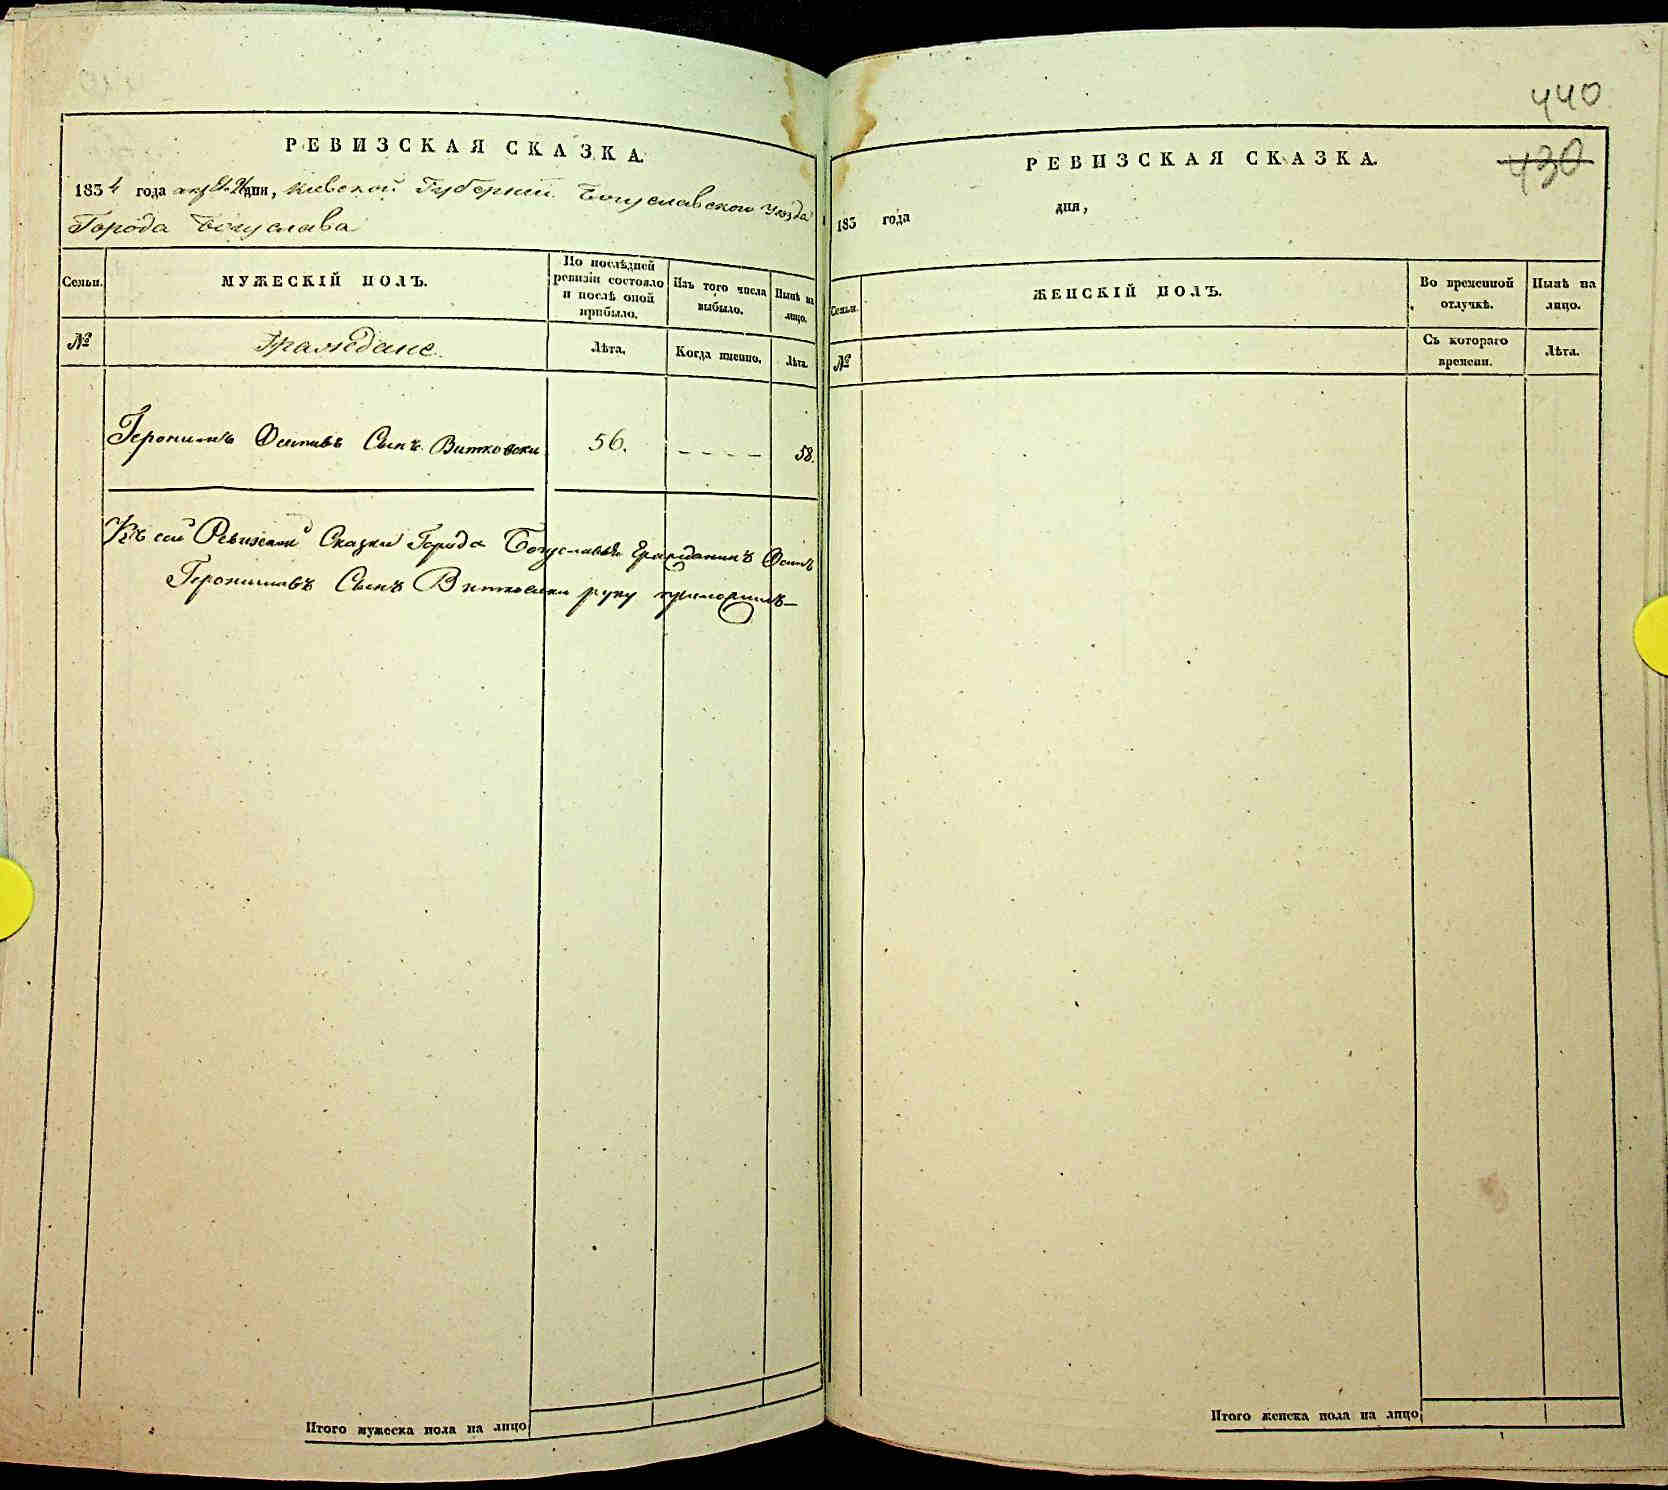 440
430
РЕВИЗСКАЯ СКАЗКА.
1834 года дня, Киевской Губернии Богуславского Уезда
Города Богуслава
Семьи.
МУЖЕСКІЙ ПОЛЪ.
По послѣдней ревизіи состояло и послѣ оной прибыло.
Изъ того числа выбыло.
Нынѣ на лицо.
№
Граждане
Лѣта.
Когда именно.
Лѣта.
Геронимъ Осиповъ Сынъ Витковски 56. - - - - 58.
Къ сей Ревизской Сказки Города Богуслава Гражданинъ Осипъ
Геронимовъ Сынъ Витковски руку приложилъ
Итого мужеска пола на лицо
РЕВИЗСКАЯ СКАЗКА.
183 года дня,
Семьи.
ЖЕНСКІЙ ПОЛЪ.
Во временной отлучкѣ.
Нынѣ на лицо.
№
Съ котораго времени.
Лѣта.
Итого женска пола на лицо